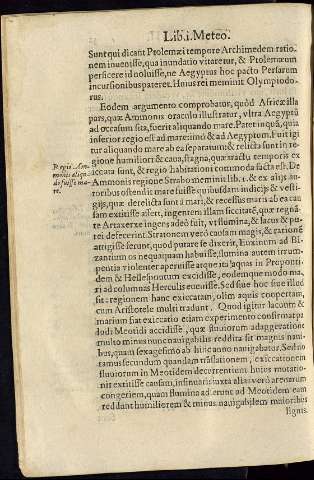 Lib.i.Meteo.
Sunt qui dicant Ptolemæi tempore Archimedem ratio-
nem inuenisse, qua inundatio vitaretur, & Ptolemæum
perficere id noluisse, ne Aegyptus hoc pacto Persarum
incursionibus pateret. Huius rei meminit Olympiodo-
rus.
Eodem argumento comprobatur, quòd Africæ illa
pars, quæ Ammonis oraculo illustratur, vltra Aegyptū
ad occasum sita, fuerit aliquando mare. Patet inquā, quia
inferior regio est ad mare imò & ad Aegyptum. Fuit igi
tur aliquando mare ab ea separatum & relicta sunt in re-
gione humiliori & caua, stagna, quæ tractu temporis ex
Regio Am-
monis aliqn̄
do fuisse ma-
re.
iccata sunt, & regio habitationi commoda facta est. De
Ammonis regione Strabo meminit lib. 1. & ex alijs au-
toribus ostendit mare fuisse quibusdam indicijs & vesti-
gijs, quæ derelicta sunt à mari, & recessus maris ab ea cau-
sam extitisse asserit, ingentem illam siccitatē, quæ regnā-
te Artaxerxe ingens adeò fuit, vt flumina, & lacus & pu-
tei defecerint. Stratonem verò causam magis, & rationē
attigisse ferunt, quod putare se dixerit, Euxinem ad Bi-
zantium os nequaquam habuisse, flumina autem irrum-
pentia violenter aperuisse atque ita aquas in Proponti-
dem & Hellespontum excidisse, eodemque modo ma-
ri ad columnas Herculis euenisse. Sed siue hoc siue illud
sit: regionem hanc exiccatam, olim aquis coopertam,
cum Aristotele multi tradunt. Quod igitur lacuum &
marium fiat exiccatio etiam experimento confirmat pa
ludi Meotidi accidisse, quæ fluuiorum adaggeratione
multò minus nunc nauigabilis reddita sit magnis naui-
bus, quam sexagesimo ab hinc anno nauigabatur. Sed no
tamus secundum quandam traslationem, exiccationem
fluuiorum in Meotidem decurrentium huius mutatio-
nis extitisse causam, insinuari iuxta alias verò arenarum
congeriem, quam flumina adferunt ad Meotidem eam
reddunt humiliorem & minus nauigabilem maioribus
lignis.